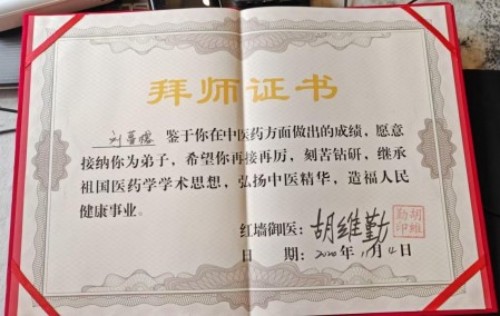 拜师证书
刘 鉴于你在中医药方面做出的成绩，愿意
接纳你为弟子，希望你再接再厉，刻苦钻研，继承
祖国医药学学术思想，弘扬中医精华，造福人民
健康事业。
红墙御医：胡维勤
胡维勤印
日 期：2020年 月 日